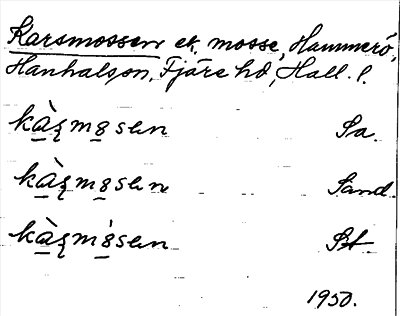 Karsmossen ek. mosse, Hammerö,
Hanhals sn, Fjäre hd, Hall. l.
kàʂmɵsen Sa.
kàʂmɵsen Sand.
kàʂmɵ̀sen St.
1950.